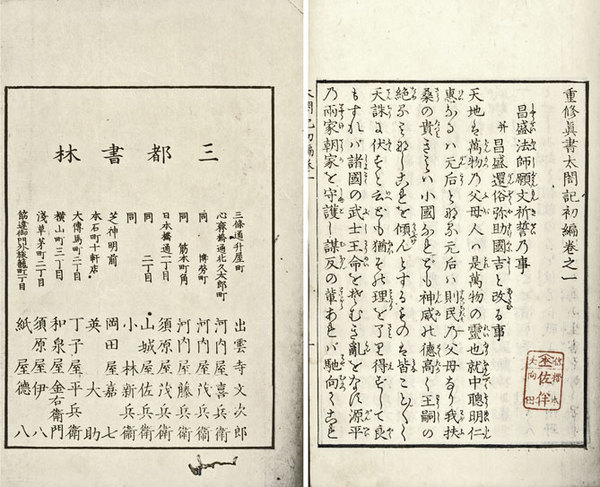 重修眞書太閤記初編卷之一
昌盛法師願文祈誓乃事
并 昌盛還俗弥助國吉と改る事
天地は萬物乃父母人ハ是萬物の靈也就中聰明仁
惠なるハ元后となる元后ハ則民乃父母なり我扶
桑の貴き小國なれども神威の德高く王嗣の
絶を傾んとするものは皆ことごとく
天誅に伏すと云ども猶の理を了得せずして良
もすれバ諸國の武士王命をそむき乱をなせば源平
乃兩家朝家を守護し謀反の輩あれバ馳向つてこれを
太閤記初編卷一
三都書林
三條通升屋町 出雲寺文次郎
心齋橋通北久太郎町 河内屋喜兵衛
同 博勞町 河内屋茂兵衛
同 筋本町角 河内屋藤兵衛
日本橋通一丁目 須原屋茂兵衛
同 二丁目 山城屋佐兵衛
同 小林新兵衛
芝神明前 岡田屋嘉七
本石町十軒店 英大助
大傳馬町二丁目 丁子屋平兵衛
横山町三丁目 和泉屋金右衛門
淺草茅町二丁目 須原屋伊八
筋違御門外旅籠町一丁目 紙屋德八